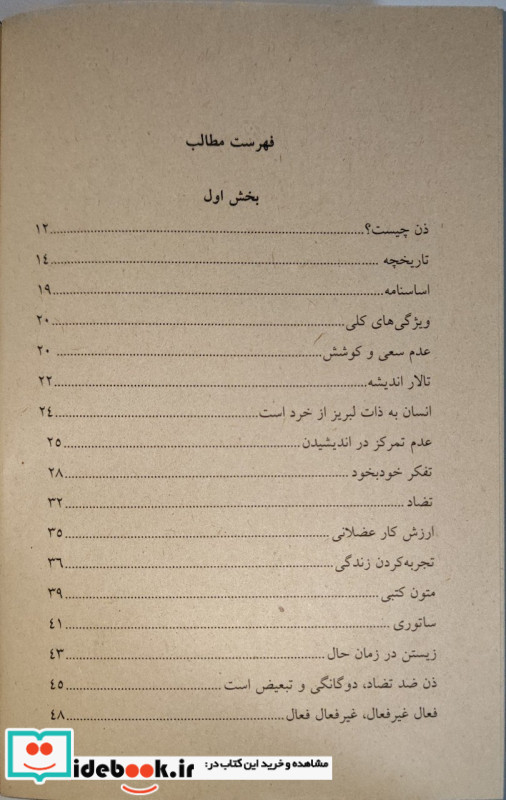 فهرست مطالب
بخش اول
ذن چیست؟ ۱۲
تاریخچه ۱٤
اساسنامه ۱۹
ویژگی‌های کلی ۲۰
عدم سعی و کوشش ۲۰
تالار اندیشه ۲۲
انسان به ذات لبریز از خرد است ۲٤
عدم تمرکز در اندیشیدن ۲۵
تفکر خودبخود ۲۸
تضاد ۳۲
ارزش کار عضلانی ۳۵
تجربه‌کردن زندگی ۳٦
متون کتبی ۳۹
ساتوری ٤۱
زیستن در زمان حال ٤۳
ذن ضد تضاد، دوگانگی و تبعیض است ٤۵
فعال غیرفعال، غیرفعال فعال ٤۸
مشاهده و خرید این کتاب در:
idebook.ir